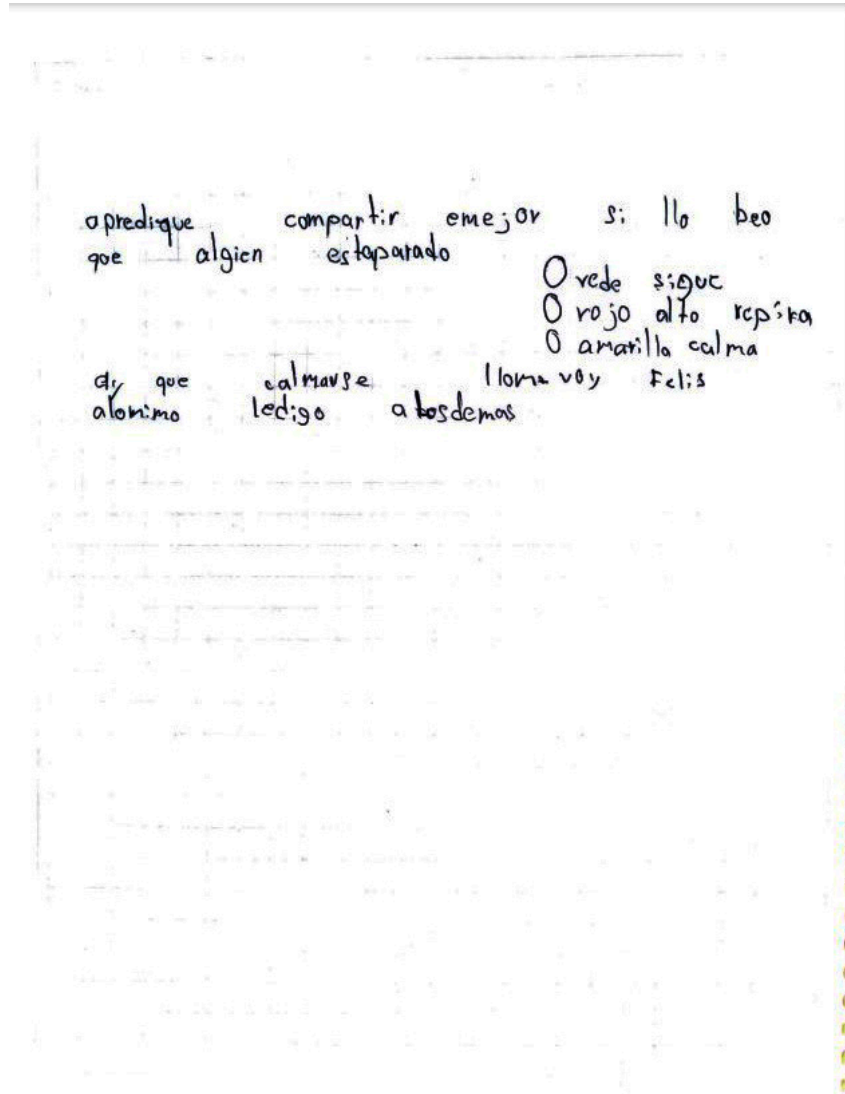 apredique compartir emejor si llo beo
que algien estaparado
O vede sigue
O rojo alto repira
O amarillo calma
dy que calmarse llome voy Felis
alomimo ledigo a losdemas